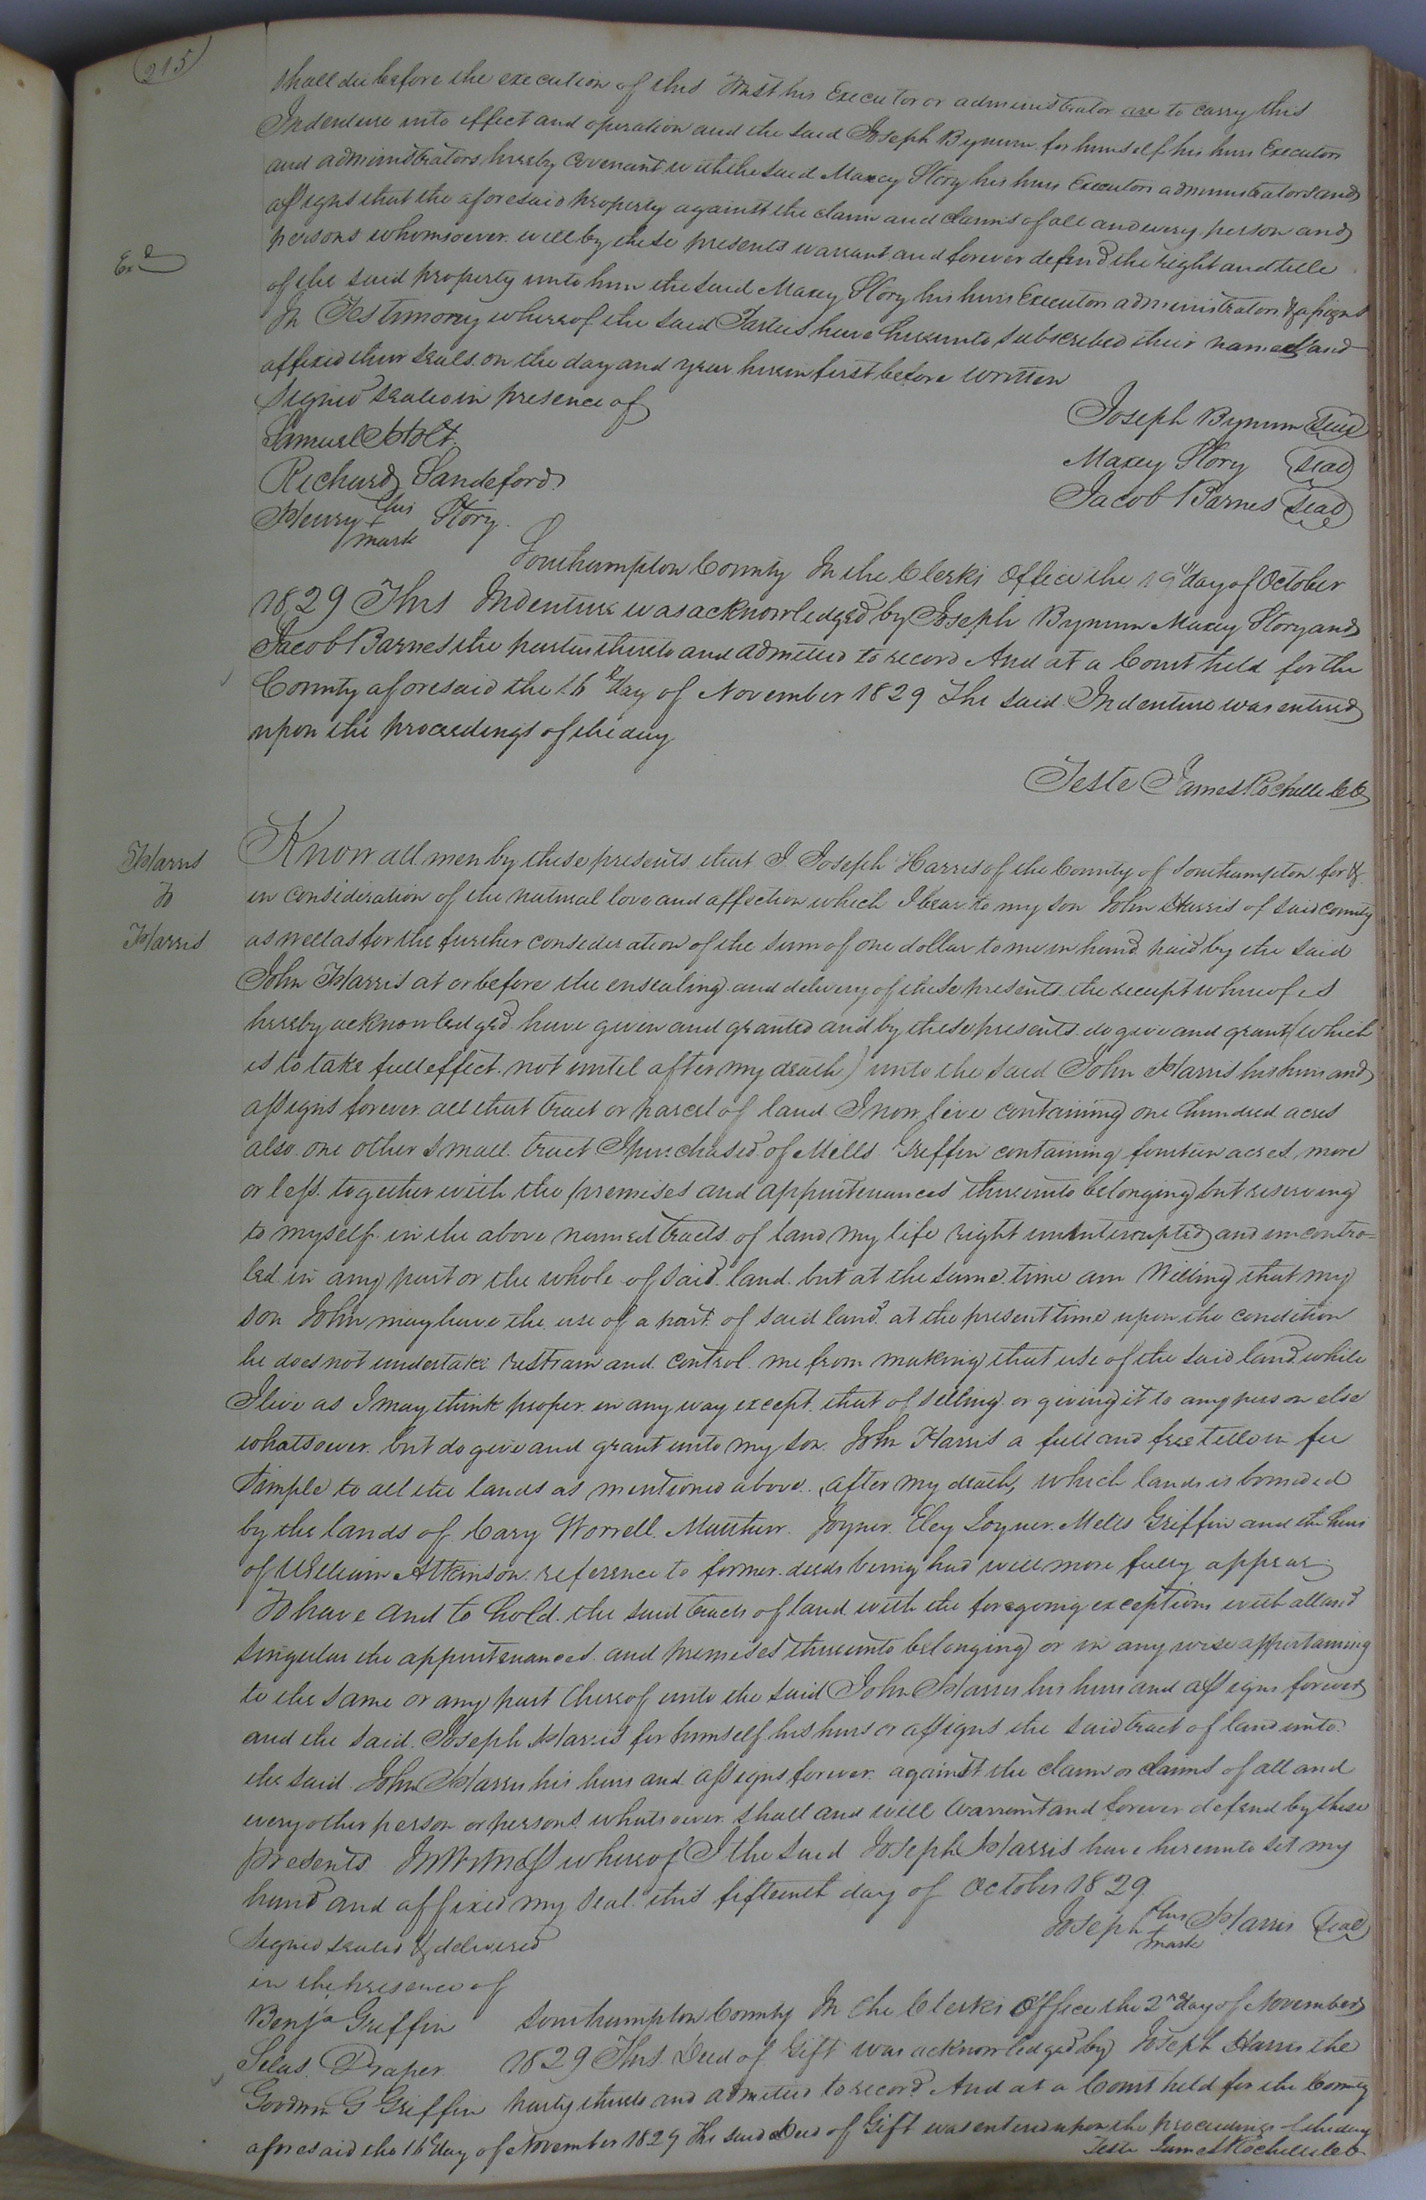 215
shall die before the execution of this Trust his Executor or administrator are to carry this
Indenture into effect and operation and the said Joseph Bynum for himself his heirs Executors
and administrators hereby Covenant with the said Maxey Story his heirs Executors administrators and
assigns that the aforesaid property against the claim and claims of all and every person and
persons whomsoever will by these presents warrant and forever defend the right and title
Exd
of the said property unto him the said Maxey Story his heirs Executors administrators & assigns
In Testimony whereof the said Parties have hereunto subscribed their names and
affixed their seals on the day and year herein first before written
Signed sealed in presence of
Joseph Bynum seal
Samuel Holt
Maxey Story seal
Richard Sandeford
Jacob Barnes seal
Henry his + mark Story
Southampton County In the Clerks Office the 19th day of October
1829 This Indenture was acknowledged by Joseph Bynum Maxey Story and
Jacob Barnes the parties thereto and admitted to record And at a Court held for the
County aforesaid the 16th day of November 1829 The said Indenture was entered
upon the proceedings of the day
Teste James Rochelle CC
Harris
to
Harris
Know all men by these presents that I Joseph Harris of the County of Southampton for &
in consideration of the natural love and affection which I bear to my son John Harris of said County
as well as for the further consideration of the sum of one dollar to me in hand paid by the said
John Harris at or before the ensealing and delivery of these presents the receipt whereof is
hereby acknowledged have given and granted and by these presents do give and grant (which
is to take full effect not until after my death) unto the said John Harris his heirs and
assigns forever all that tract or parcel of land I now live containing one hundred acres
also one other small tract I purchased of Mills Griffin containing fourteen acres more
or less together with the premises and appurtenances thereunto belonging but reserving
to myself in the above named tracts of land my life right uninterrupted and uncontro=
led in any part or the whole of said land but at the same time am Willing that my
son John may have the use of a part of said land at the present time upon the condition
he does not undertake restrain and control me from making that use of the said land while
I live as I may think proper in any way except that of selling or giving it to any person else
whatsoever but do give and grant unto my son John Harris a full and free title in fee
simple to all the lands as mentioned above after my death, which lands is bounded
by the lands of Cary Worrell Matthew Joyner Eley Joyner Mills Griffin and the heirs
of William Atkinson reference to former deeds being had will more fully appear
To have and to hold the said tracts of land with the foregoing exceptions with all and
singular the appurtenances and premises thereunto belonging or in any wise appertaining
to the same or any part thereof unto the said John Harris his heirs and assigns forever
and the said Joseph Harris for himself his heirs or assigns the said tract of land unto
the said John Harris his heirs and assigns forever against the claim or claims of all and
every other person or persons whatsoever shall and will warrant and forever defend by these
presents In Witness whereof I the said Joseph Harris have hereunto set my
hand and affixed my seal this fifteenth day of October 1829
Joseph his mark Harris seal
Signed sealed & delivered
in the presence of
Benja Griffin
Silas Draper
Goodwin G Griffin
Southampton County In the Clerks Office the 2nd day of November
1829 This Deed of Gift was acknowledged by Joseph Harris the
party thereto and admitted to record And at a Court held for the County
aforesaid the 16th day of November 1829 The said Deed of Gift was entered upon the proceedings of the day
Teste James Rochelle CC